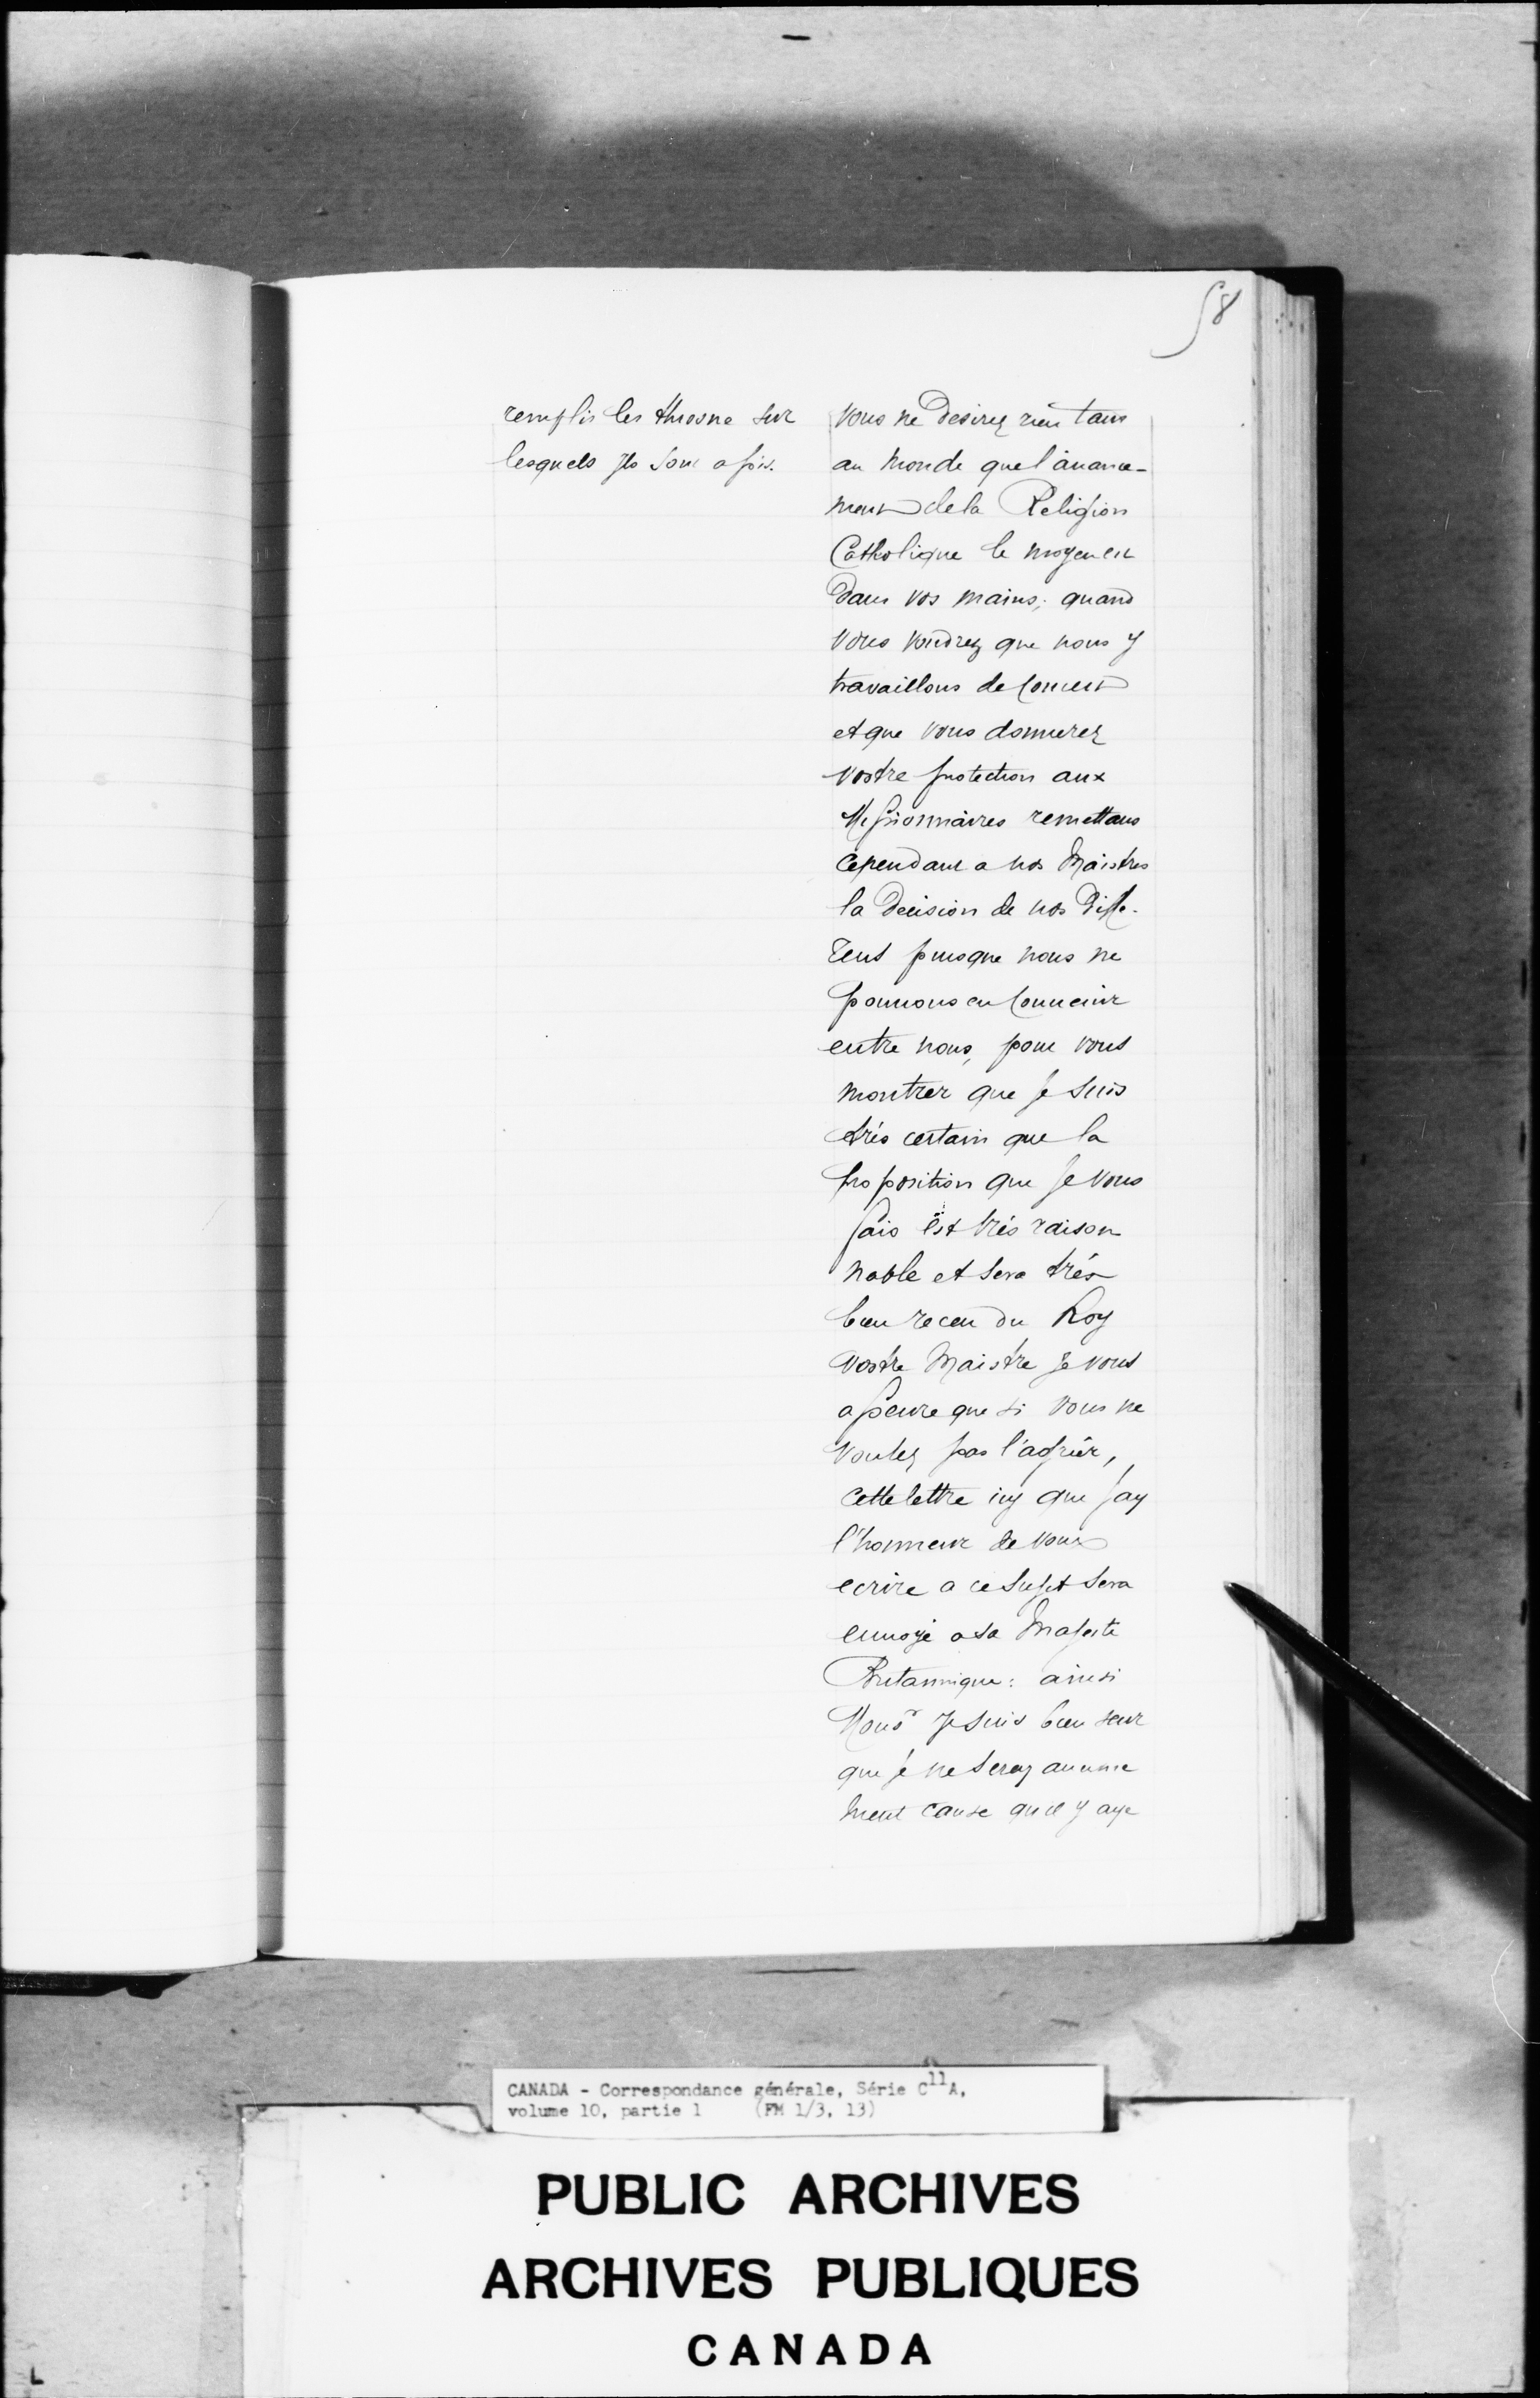 58
remplis les throsne sur
lesquels jls sont assis.
Vous ne desirez rien tant
au monde que l'auance-
ment de la Religion
Catholique le moyen est
dans vos mains; quand
vous voudrez que nous y
travaillons de concert
et que vous donnerez
vostre protection aux
Missionnaires remettans
cependant a nos Maistres
la decision de nos diffe-
rens puisque nous ne
pouuons en conuenir
entre nous, pour vous
montrer que je suis
trés certain que la
proposition que je vous
fais est trés raison
nable et sera trés
bien receu du Roy
vostre Maistre je vous
asseure que si vous ne
voulez pas l'agréer,
cette lettre icy que j'ay
l'honneur de vous
ecrire a ce sujet sera
enuoyé a sa Majesté
Britannique: ainsi
Monsr je suis bien seur
que je ne seray aucune
ment cause qu'il y aye
CANADA - Correspondance générale, Série C11A,
volume 10, partie 1 (FM 1/3, 13)
PUBLIC ARCHIVES
ARCHIVES PUBLIQUES
CANADA